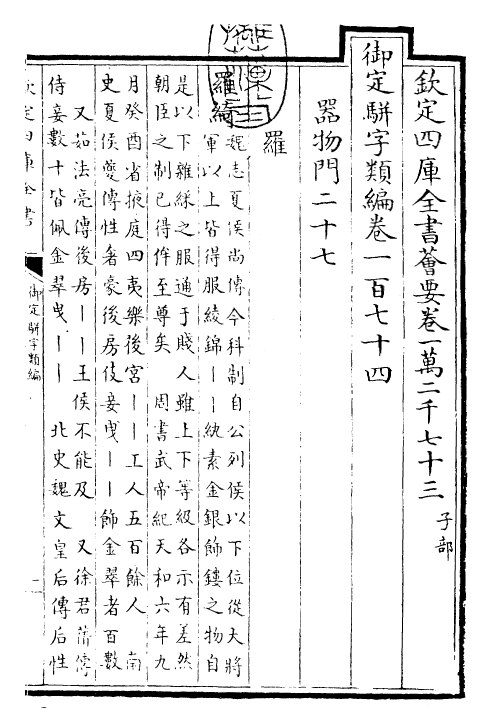 欽定四庫全書薈要卷一萬二千七十三 子部
御定駢字類編卷一百七十四
器物門二十七
羅
羅綺
魏志夏侯尚傳今科制自公列侯以下位從大將
軍以上皆得服綾錦丨丨紈素金銀飾鏤之物自
是以下雜綵之服通于賤人雖上下等級各示有差然
朝臣之制已得侔至尊矣 周書武帝紀天和六年九
月癸酉省掖庭四夷樂後宮丨丨工人五百餘人 南
史夏侯夔傳性奢豪後房伎妾曳丨丨飾金翠者百數
又茹法亮傳後房丨丨王侯不能及 又徐君蒨傳
侍妾數十皆佩金翠曳丨丨 北史魏文皇后傳后性
欽定四庫全書
御定駢字類編
一